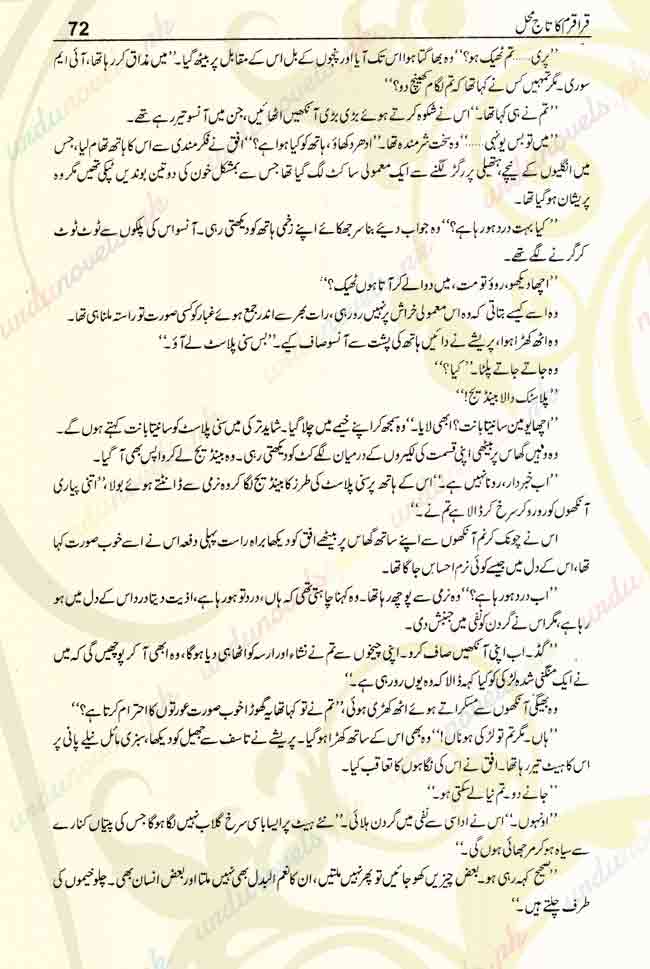 قراقرم کا تاج محل
72
’’پری..... تم ٹھیک ہو؟‘‘ وہ بھاگتا ہوا اس تک آیا اور پنجوں کے بل اس کے مقابل پر بیٹھ گیا۔ ’’میں مذاق کر رہا تھا، آئی ایم
سوری۔ مگر تمہیں کس نے کہا تھا کہ تم لگام کھینچ دو؟‘‘
’’تم نے ہی کہا تھا۔‘‘ اس نے شکوہ کرتے ہوئے بڑی بڑی آنکھیں اٹھائیں، جن میں آنسو تیر رہے تھے۔
’’میں تو بس یونہی.....‘‘ وہ سخت شرمندہ تھا۔ ’’ادھر دکھاؤ، ہاتھ کو کیا ہوا ہے؟‘‘ افق نے فکرمندی سے اس کا ہاتھ تھام لیا، جس
میں انگلیوں کے نیچے، ہتھیلی پر رگڑ لگنے سے ایک معمولی سا کٹ لگ گیا تھا جس سے بمشکل خون کی دو تین بوندیں ٹپکی تھیں مگر وہ
پریشان ہو گیا تھا۔
’’کیا بہت درد ہو رہا ہے؟‘‘ وہ جواب دیئے بنا سر جھکائے اپنے زخمی ہاتھ کو دیکھتی رہی۔ آنسو اس کی پلکوں سے ٹوٹ ٹوٹ
کر گرنے لگے تھے۔
’’اچھا دیکھو، روؤ تو مت، میں دوا لے کر آتا ہوں ٹھیک؟‘‘
وہ اسے کیسے بتاتی کہ وہ اس معمولی خراش پر نہیں رو رہی، رات بھر سے اندر جمع ہوئے غبار کو کسی صورت تو راستہ ملنا ہی تھا۔
وہ اٹھ کھڑا ہوا، پریشے نے دائیں ہاتھ کی پشت سے آنسو صاف کیے۔ ’’بس سنی پلاسٹ لے آؤ۔‘‘
وہ جاتے جاتے پلٹا۔ ’’کیا؟‘‘
’’پلاسٹک والا بینڈیج!‘‘
’’اچھا یو مین سانیتا بانت؟ ابھی لایا۔‘‘ وہ سمجھ کر اپنے خیمے میں چلا گیا۔ شاید ترکی میں سنی پلاسٹ کو سانیتا بانت کہتے ہوں گے۔
وہ وہیں گھاس پر بیٹھی اپنی قسمت کی لکیروں کے درمیان لگے کٹ کو دیکھتی رہی۔ وہ بینڈیج لے کر واپس بھی آ گیا۔
’’اب خبردار، رونا نہیں ہے۔‘‘ اس کے ہاتھ پر سنی پلاسٹ کی طرز کا بینڈیج لگا کر وہ نرمی سے ڈانٹتے ہوئے بولا، ’’اتنی پیاری
آنکھوں کو رو رو کر سرخ کر ڈالا ہے تم نے۔‘‘
اس نے چونک کر نم آنکھوں سے اپنے ساتھ گھاس پر بیٹھے افق کو دیکھا براہ راست پہلی دفعہ اس نے اسے خوب صورت کہا
تھا، اس کے دل میں جیسے کوئی نرم احساس جاگا تھا۔
’’اب درد ہو رہا ہے؟‘‘ وہ نرمی سے پوچھ رہا تھا۔ وہ کہنا چاہتی تھی کہ ہاں، درد تو ہو رہا ہے، اذیت دیتا درد اس کے دل میں ہو
رہا ہے، مگر اس نے گردن کو نفی میں جنبش دی۔
’’گڈ۔ اب اپنی آنکھیں صاف کرو۔ اپنی چیخوں سے تم نے نشاء اور ارسہ کو اٹھا ہی دیا ہوگا، وہ ابھی آ کر پوچھیں گی کہ میں
نے ایک منگنی شدہ لڑکی کو کیا کہہ ڈالا کہ وہ یوں رو رہی ہے۔‘‘
وہ بھیگی آنکھوں سے مسکراتے ہوئے اٹھ کھڑی ہوئی، ’’تم نے تو کہا تھا یہ گھوڑا خوب صورت عورتوں کا احترام کرتا ہے؟‘‘
’’ہاں۔ مگر تم تو لڑکی ہو ناں!‘‘ وہ بھی اس کے ساتھ کھڑا ہو گیا۔ پریشے نے تاسف سے جھیل کو دیکھا، سبزی مائل نیلے پانی پر
اس کا ہیٹ تیر رہا تھا۔ افق نے اس کی نگاہوں کا تعاقب کیا۔
’’جانے دو۔ تم نیا لے سکتی ہو۔‘‘
’’اونہوں۔‘‘ اس نے اداسی سے نفی میں گردن ہلائی۔ ’’نئے ہیٹ پر ایسا باسی سرخ گلاب نہیں لگا ہوگا جس کی پتیاں کنارے
سے سیاہ ہو کر مرجھائی ہوں گی۔‘‘
’’صحیح کہہ رہی ہو۔ بعض چیزیں کھو جائیں تو پھر نہیں ملتیں، ان کا نعم البدل بھی نہیں ملتا اور بعض انسان بھی۔ چلو خیموں کی
طرف چلتے ہیں۔‘‘
urdunovels.pk